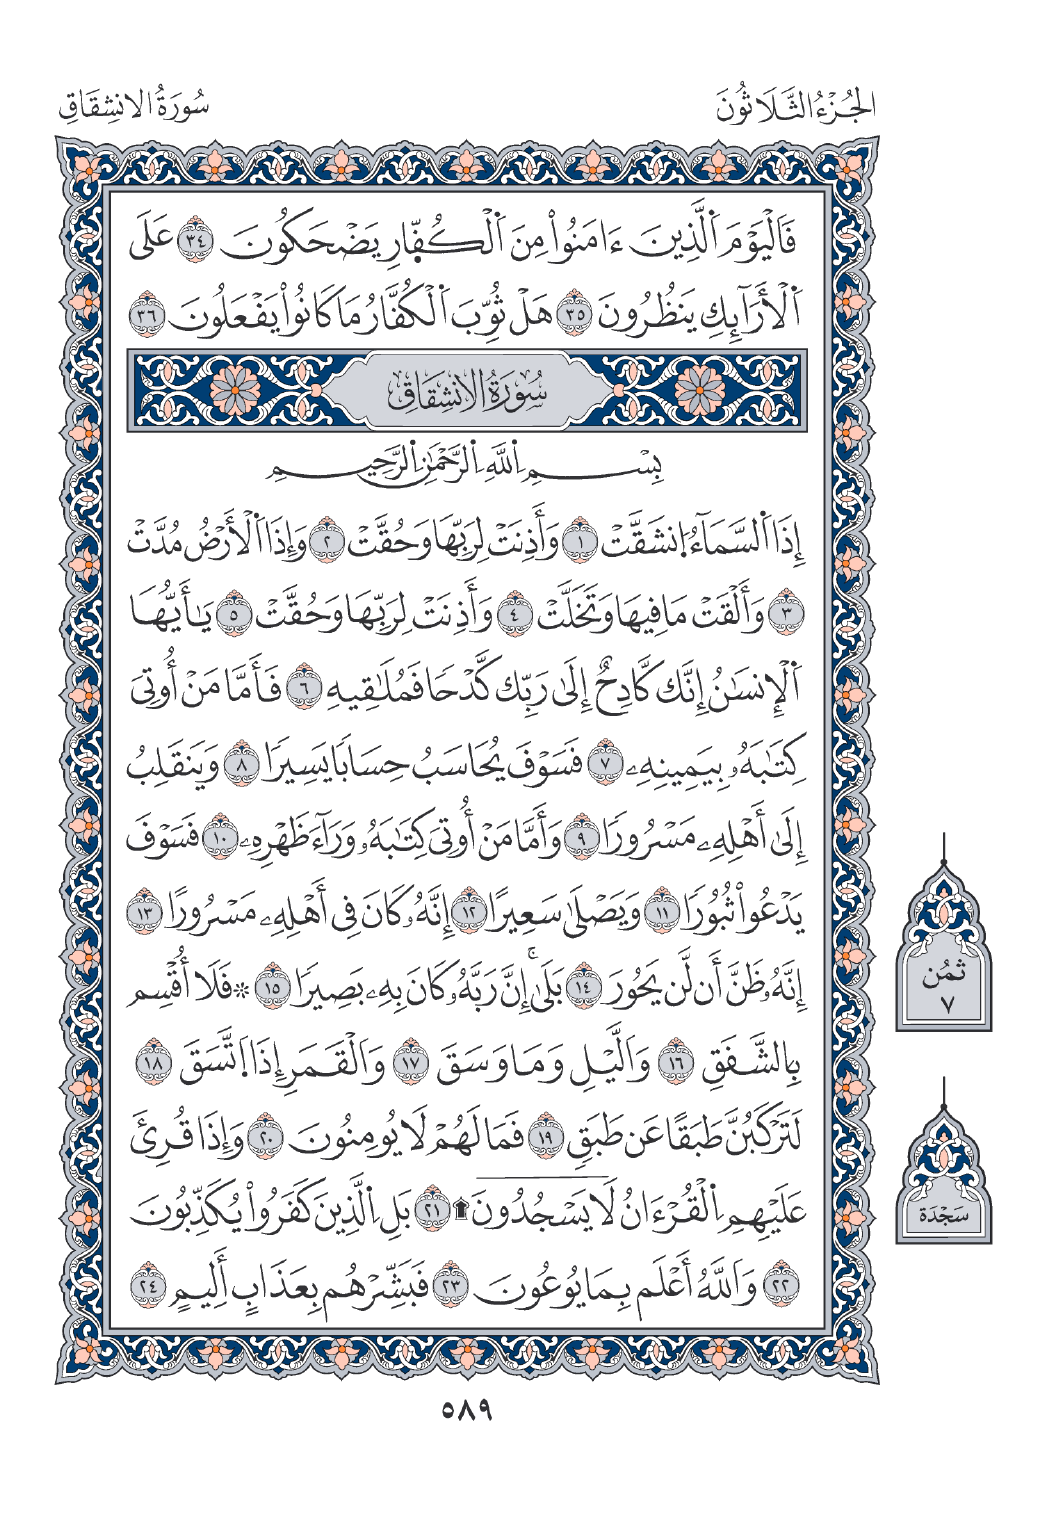 الجُزْءُ الثَّلَاثُونَ
سُورَةُ الانشِقَاقِ
فَالْيَوْمَ اَلَّذِينَ ءَامَنُواْ مِنَ اَلْكُفّ۪ارِ يَضْحَكُونَ ٣٤ عَلَى
اَلْأَرَآئِكِ يَنظُرُونَ ٣٥ هَلْ ثُوِّبَ اَلْكُفَّارُ مَا كَانُواْ يَفْعَلُونَ ٣٦
سُورَةُ الانشِقَاقِ
بِسْمِ اِللَّهِ اِلرَّحْمَٰنِ اِلرَّحِيمِ
إِذَا اَلسَّمَآءُ اُ۪نشَقَّتْ ١ وَأَذِنَتْ لِرَبِّهَا وَحُقَّتْ ٢ وَإِذَا اَلْأَرْضُ مُدَّتْ
٣ وَأَلْقَتْ مَا فِيهَا وَتَخَلَّتْ ٤ وَأَذِنَتْ لِرَبِّهَا وَحُقَّتْ ٥ يَٰأَيُّهَا
اَلْإِنسَٰنُ إِنَّك كَّادِحٌ إِلَىٰ رَبِّك كَّدْحًا فَمُلَٰقِيهِ ٦ فَأَمَّا مَنْ أُوتِىَ
كِتَٰبَهُۥ بِيَمِينِهِۦ ٧ فَسَوْفَ يُحَاسَبُ حِسَابًا يَسِيرًا ٨ وَيَنقَلِبُ
إِلَىٰ أَهْلِهِۦ مَسْرُورًا ٩ وَأَمَّا مَنْ أُوتِىَ كِتَٰبَهُۥ وَرَآءَ ظَهْرِهِۦ ١٠ فَسَوْفَ
يَدْعُواْ ثُبُورًا ١١ وَيَصْلَىٰ سَعِيرًا ١٢ إِنَّهُۥ كَانَ فِى أَهْلِهِۦ مَسْرُورًا ١٣
إِنَّهُۥ ظَنَّ أَن لَّن يَحُورَ ١٤ بَلَىٰۚ إِنَّ رَبَّهُۥ كَانَ بِهِۦ بَصِيرًا ١٥ ۞ فَلَا أُقْسِم
بِالشَّفَقِ ١٦ وَاَلَّيْلِ وَمَا وَسَقَ ١٧ وَاَلْقَمَرِ إِذَا اَ۪تَّسَقَ ١٨
لَتَرْكَبُنَّ طَبَقًا عَن طَبَقٍ ١٩ فَمَا لَهُمْ لَا يُومِنُونَ ٢٠ وَإِذَا قُرِئَ
عَلَيْهِمِ اِلْقُرْءَانُ لَا يَسْجُدُونَ ۩ ٢١ بَلِ اِلَّذِينَ كَفَرُواْ يُكَذِّبُونَ
٢٢ وَاَللَّهُ أَعْلَم بِمَا يُوعُونَ ٢٣ فَبَشِّرْهُم بِعَذَابٍ أَلِيمٍ ٢٤
ثمُن
٧
سَجْدَة
٥٨٩